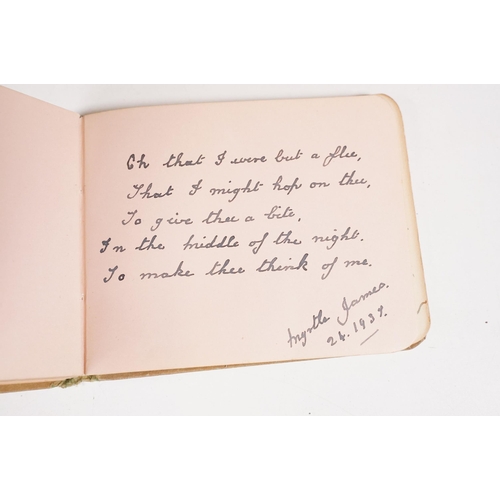 Oh that I were but a flee,
That I might hop on thee,
To give thee a bite,
In the middle of the night.
To make thee think of me.
Myrtle James.
24.1937.